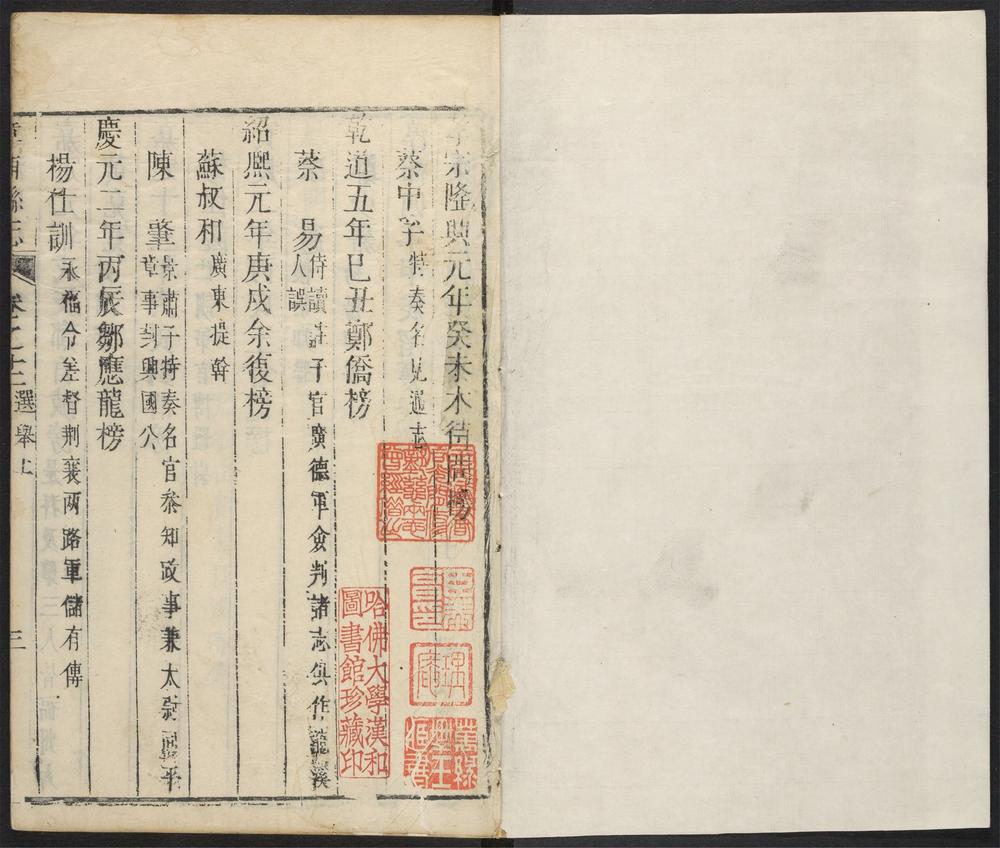 孝宗隆興元年癸未木待問榜
蔡中孚 特奏名見通志
乾道五年巳丑鄭僑榜
蔡 易 侍讀子官廣德軍僉判諸志俱作龍溪
人誤
紹熙元年庚戌余復榜
蘇叔和 廣東提幹
陳十肇 景肅子特奏名官參知政事兼太尉平
章事封興國公
慶元二年丙辰鄒應龍榜
楊仕訓 永福令差督荆襄兩路軍儲有傳
漳浦縣志 卷之十二 選舉上 三
哈佛大學漢和
圖書館珍藏印